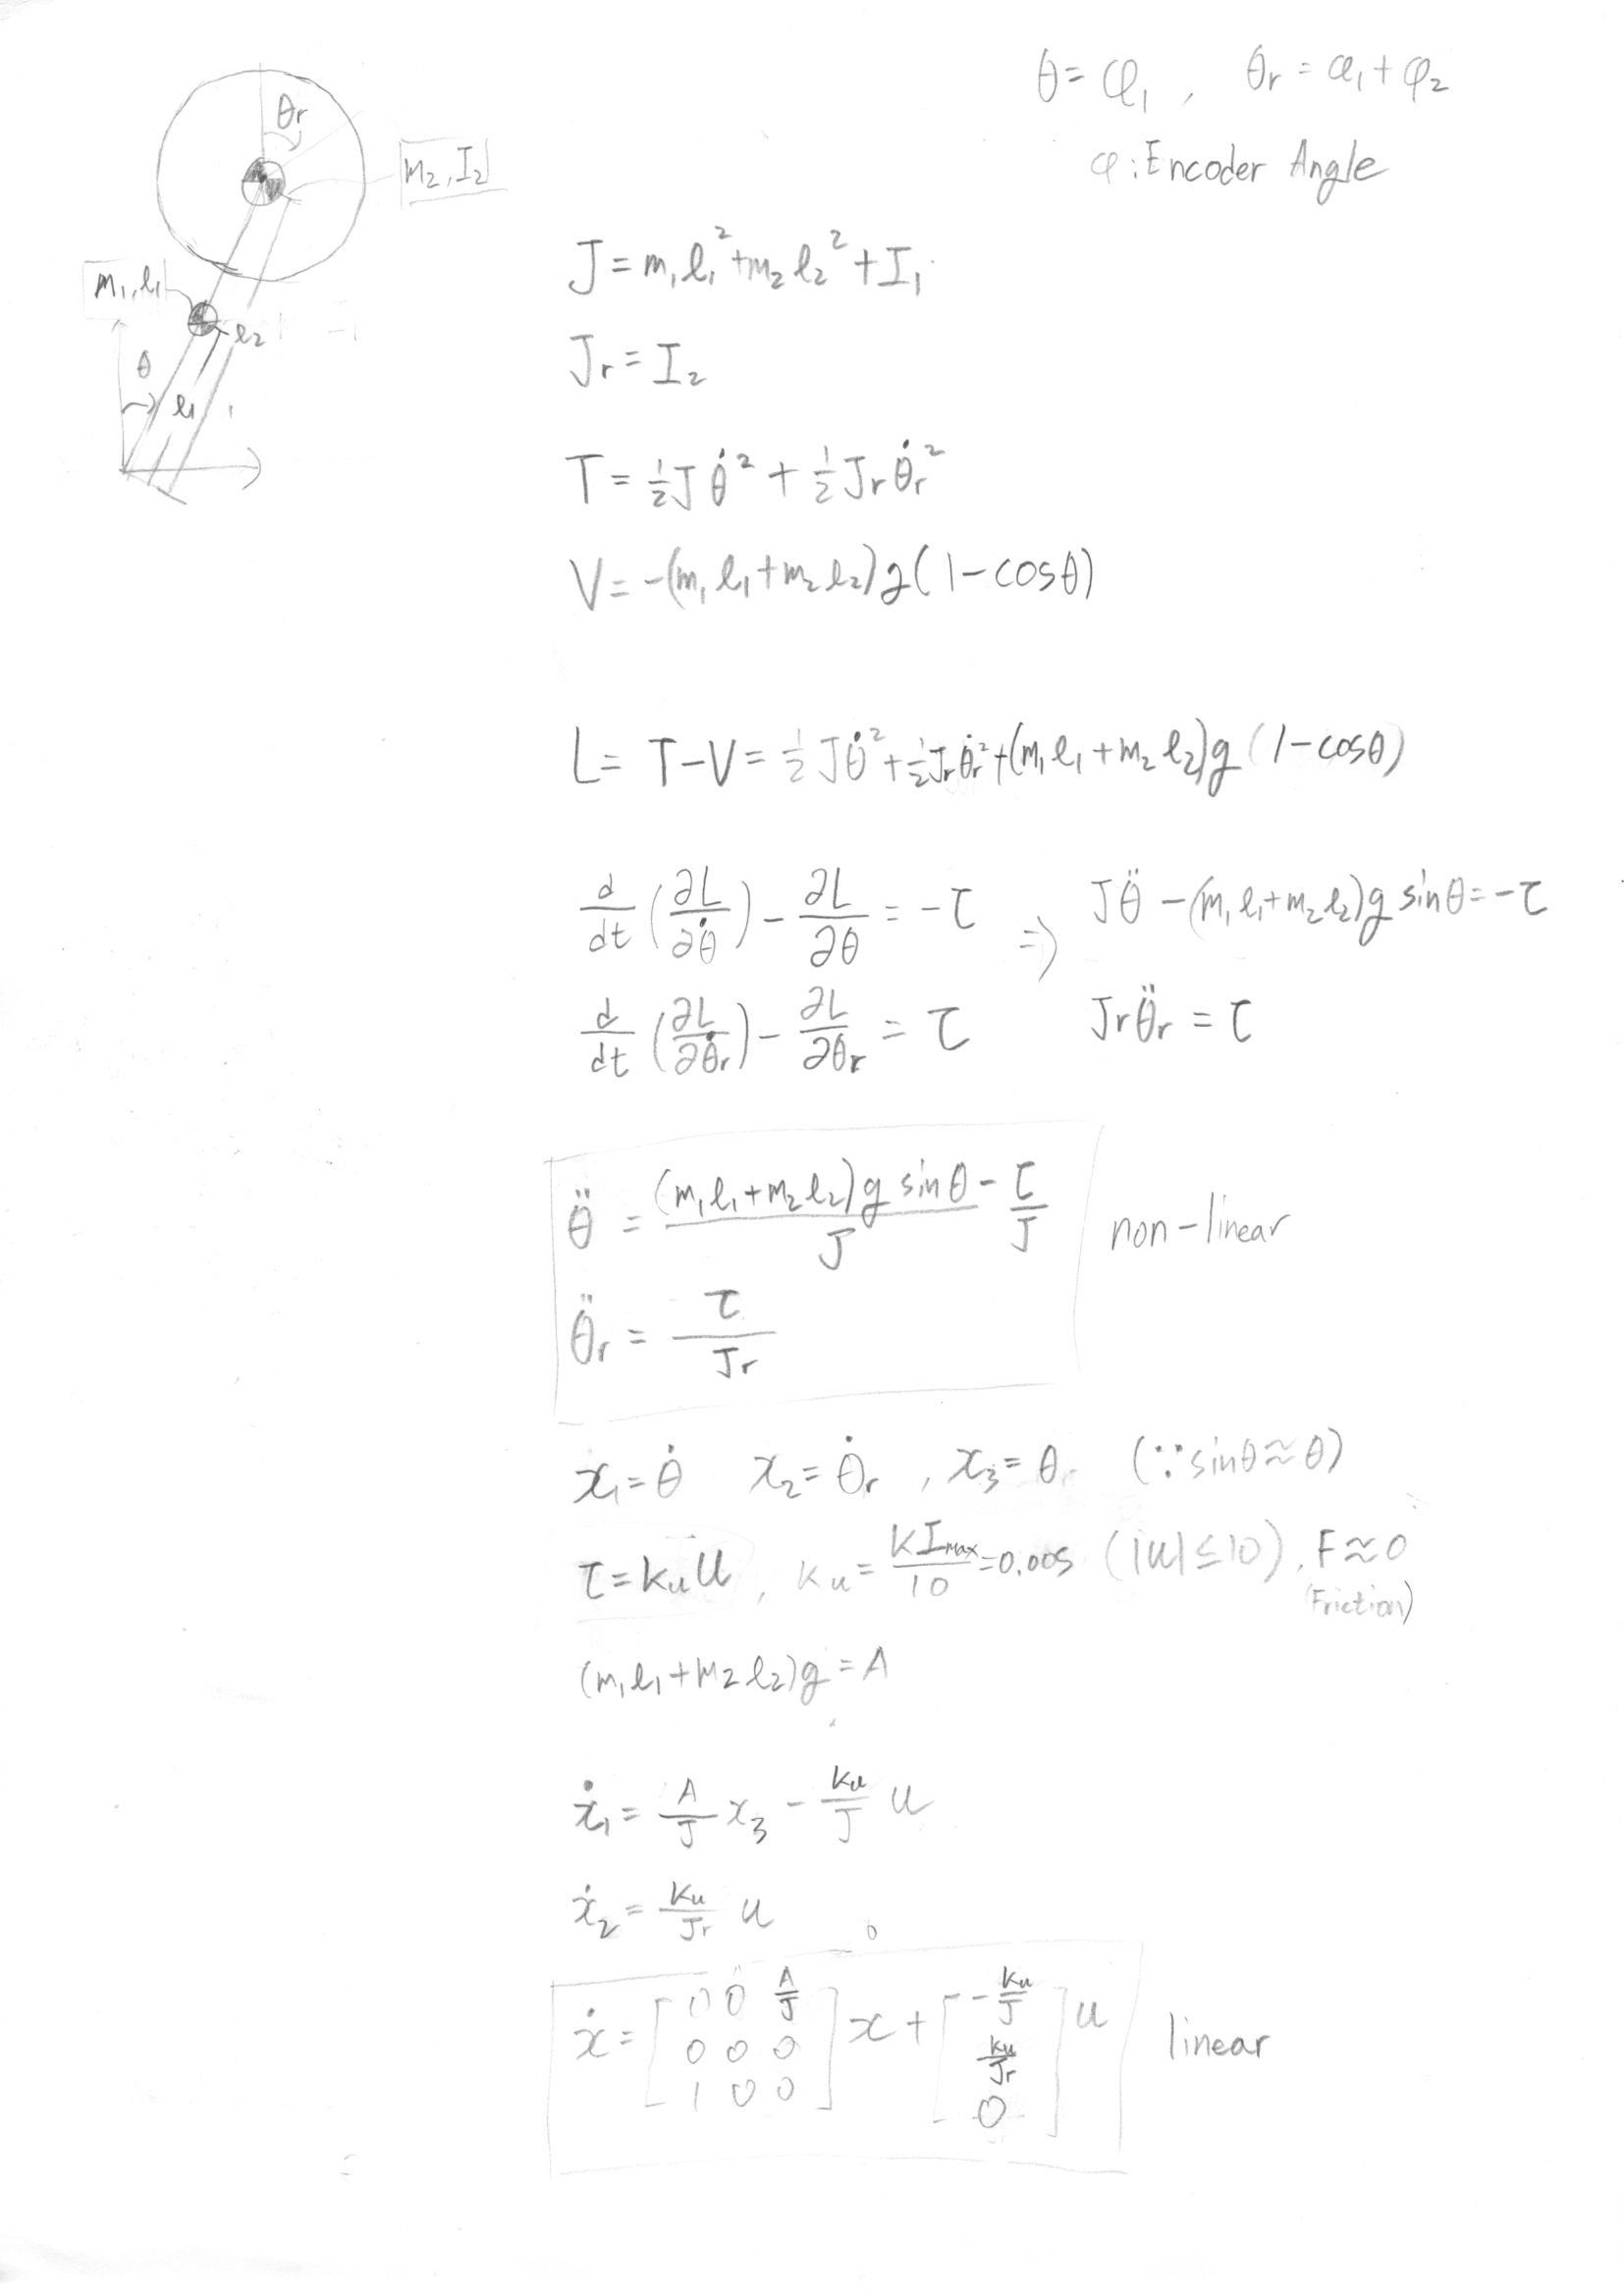 θ = φ₁ , θr = φ₁ + φ₂
φ : Encoder Angle
θr
m₂, I₂
m₁, l₁
l₂
θ
l₁
J = m₁l₁² + m₂l₂² + I₁
Jr = I₂
T = ½Jθ̇² + ½Jrθ̇r²
V = -(m₁l₁ + m₂l₂)g(1 - cosθ)
L = T - V = ½Jθ̇² + ½Jrθ̇r² + (m₁l₁ + m₂l₂)g(1 - cosθ)
d/dt (∂L/∂θ̇) - ∂L/∂θ = -τ ⇒ Jθ̈ - (m₁l₁ + m₂l₂)g sinθ = -τ
d/dt (∂L/∂θ̇r) - ∂L/∂θr = τ Jrθ̈r = τ
θ̈ = (m₁l₁ + m₂l₂)g sinθ / J - τ/J non-linear
θ̈r = τ/Jr
x₁ = θ̇ x₂ = θ̇r , x₃ = θ (∵ sinθ ≈ θ)
τ = kuu , ku = kImax/10 = 0.005 (|u| ≤ 10), F ≈ 0
(Friction)
(m₁l₁ + m₂l₂)g = A
ẋ₁ = A/J x₃ - ku/J u
ẋ₂ = ku/Jr u
ẋ = [0 0 A/J; 0 0 0; 1 0 0] x + [-ku/J; ku/Jr; 0] u linear